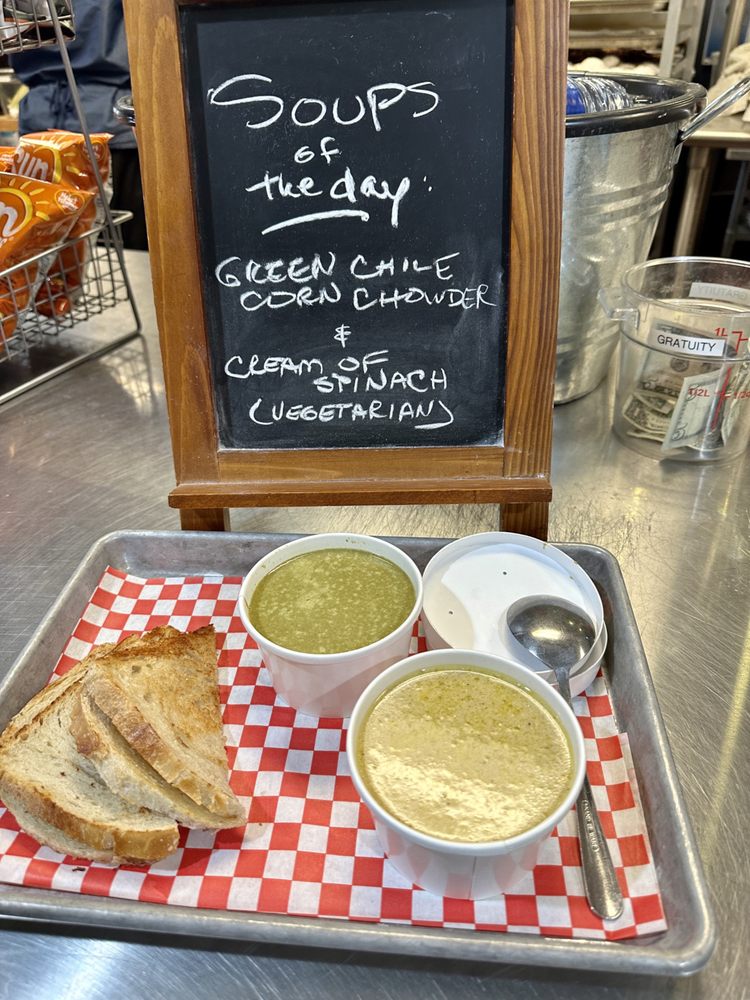 SOUPS
of
the day:
GREEN CHILE
CORN CHOWDER
&
CREAM OF
SPINACH
(VEGETARIAN)
un
n
GRATUITY
1L
1/2L